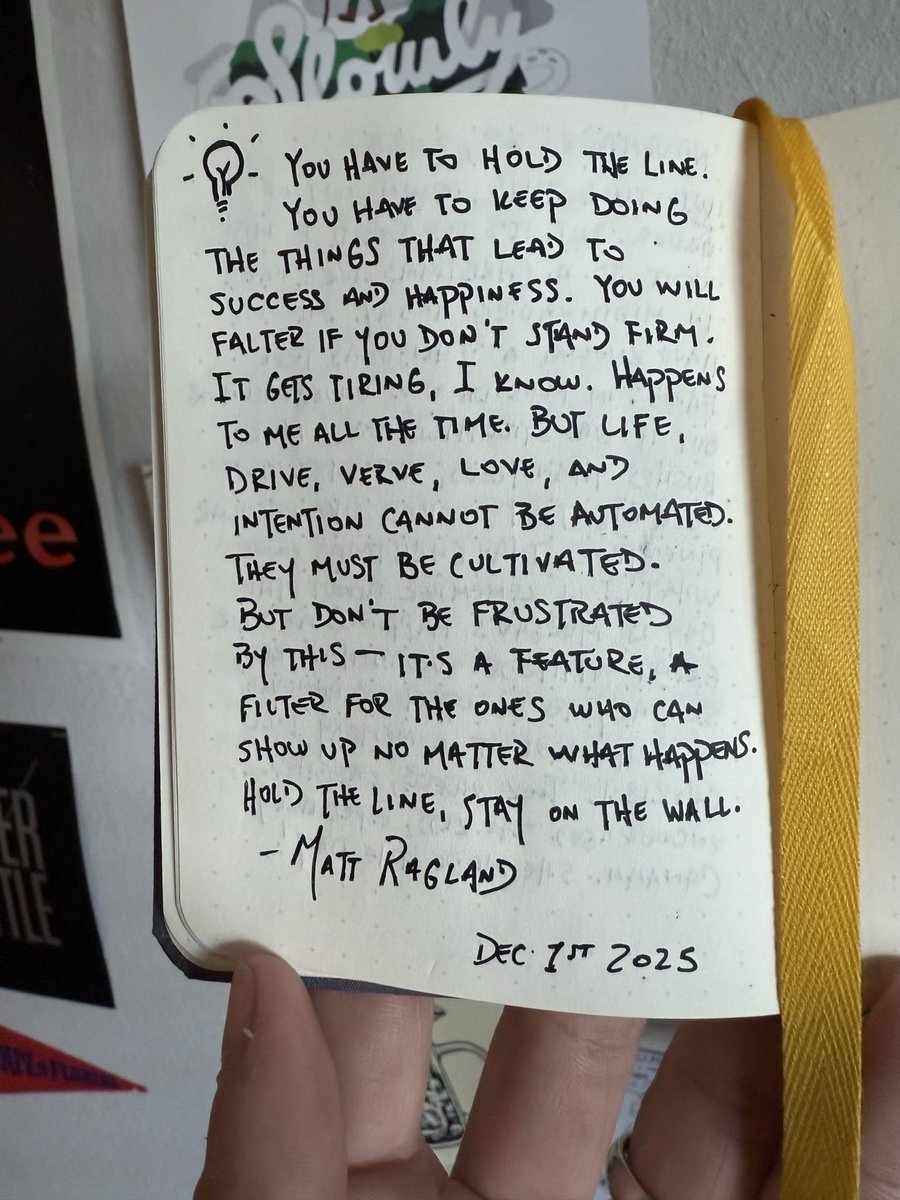 Slowly
YOU HAVE TO HOLD THE LINE.
YOU HAVE TO KEEP DOING
THE THINGS THAT LEAD TO
SUCCESS AND HAPPINESS. YOU WILL
FALTER IF YOU DON'T STAND FIRM.
IT GETS TIRING, I KNOW. HAPPENS
TO ME ALL THE TIME. BUT LIFE,
DRIVE, VERVE, LOVE, AND
INTENTION CANNOT BE AUTOMATED.
THEY MUST BE CULTIVATED.
BUT DON'T BE FRUSTRATED
BY THIS — IT'S A FEATURE, A
FILTER FOR THE ONES WHO CAN
SHOW UP NO MATTER WHAT HAPPENS.
HOLD THE LINE, STAY ON THE WALL.
- MATT RAGLAND
DEC. 1ST 2025
ee